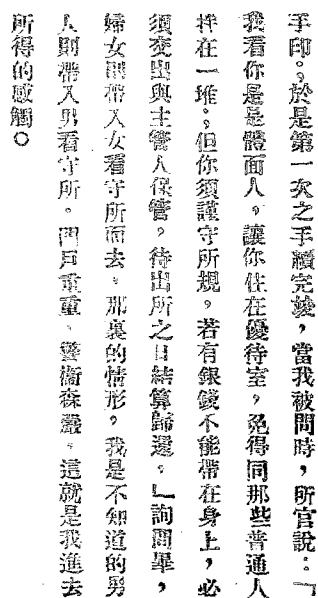 手印。於是第一次之手續完竣，當我被問時，所官說：「
我看你是是體面人，讓你住在優待室，免得同那些普通人
拌在一堆。但你須謹守所規。若有銀錢不能帶在身上，必
須交出與主管人保管。待出所之日結算歸還。」詢問畢，
婦女則帶入女看守所而去。那裏的情形，我是不知道的男
人則帶入男看守所。門戶重重、警衞森嚴。這就是我進去
所得的感觸○